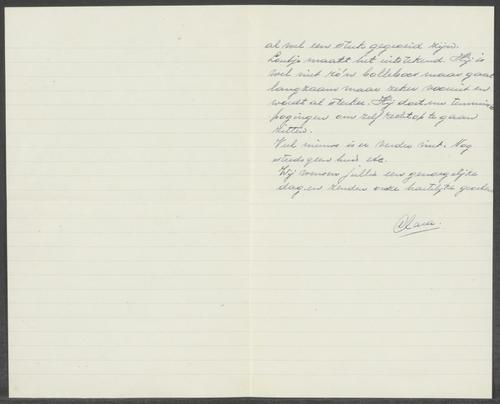 al wel een stuk gegroeid zijn.
Loutje maakt het uitstekend. Hij is
wel niet zo'n bolleboos maar gaat
langzaam maar zeker vooruit en
wordt al sterker. Hij doet nu
pogingen om zelf rechtop te gaan
zitten.
Veel nieuws is er verder niet. Nog
steeds geen huis etc.
Wij wensen jullie een genoegelijke
dag en zenden onze hartelijke groeten
Clara.